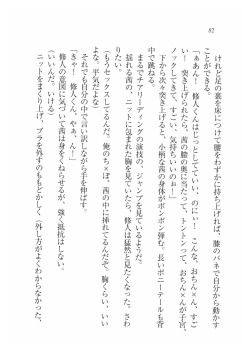 82
けれど足の裏を床につけて腰をわずかに持ち上げれば、膝のバネで自分から動かす
ことができる。
「ぁあん！　修人くんはじっとしてていい、のにい！　こんな、おち×ん、すご
い！　突き上げられたら、茜の膣の奥に当たって、トントンって、おち×んが子宮、
ノックしてきて、すごい、気持ちいいのぉ！」
下から次々突き上げられて、小柄な全身がボンボン弾む。長いポニーテールも背
中で跳ねる。
まるでチアリーディングの演技の、ジャンプを見ているようだ。
揺れる茜の、ニットに包まれた胸を見ていたら、修人は猛然と見たくなった。さわ
りたい。
（もうセックスしてるんだ。俺のち×ぽ、茜の中に挿れてるんだぞ。胸くらい、いい
よな。平気だよな）
それでも自分の中で言い訳しながら手を伸ばす。
「きゃ！　修人くん、や、ん！」
修人の意図に気づいて茜は身をくねらせるが、強く抵抗はしない。
（いいんだ。いける）
ニットをまくり上げ、ブラを外すのももどかしく（外し方がよくわからなかった、